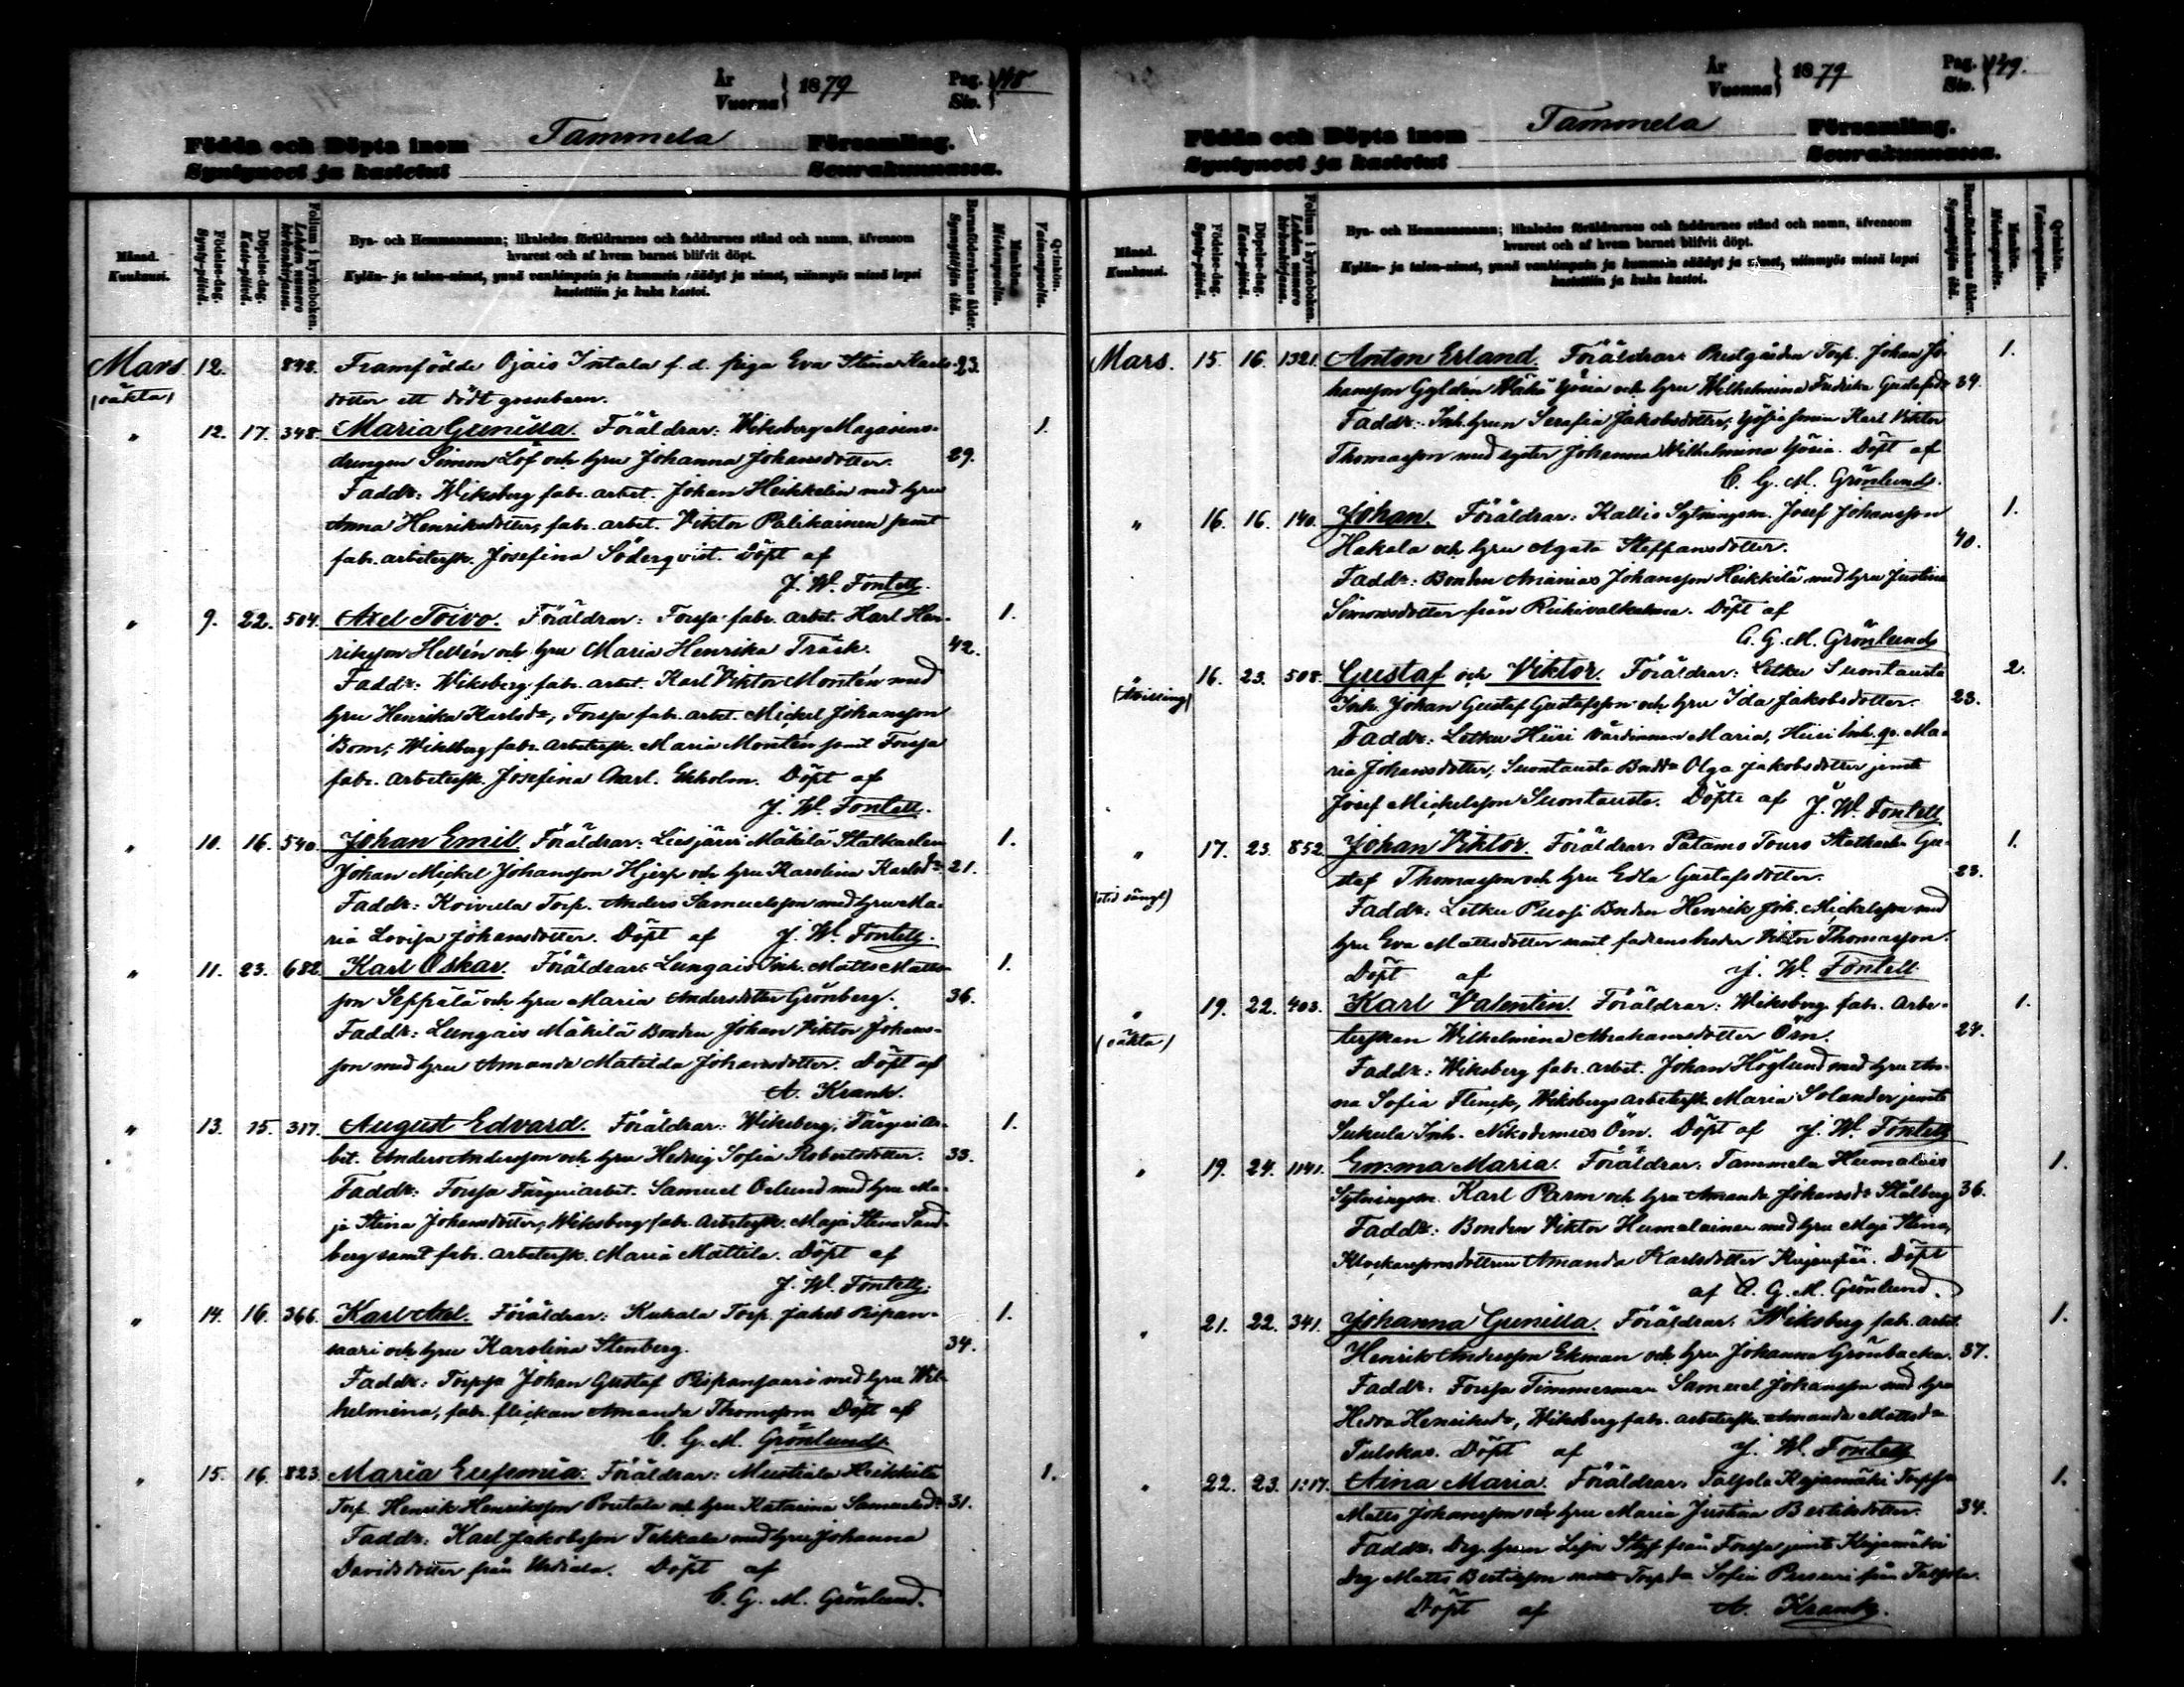 År
Vuonna } 1879 Pag.
Siv. } 118
Födda och Döpta inom Tammela Församling.
Syntyneet ja kastetut Seurakunnassa.
Månad. Kuukausi.
Födelse-dag. Synty-päivä.
Döpelse-dag. Kaste-päivä.
Folium i kyrkoboken. Lehden numero kirkonkirjassa.
Bya- och Hemmansnamn; likaledes föräldrarnes och faddrarnes stånd och namn, äfvensom
hvarest och af hvem barnet blifvit döpt.
Kylän- ja talon-nimet, ynnä vanhimpain ja kummein säädyt ja nimet, niinmyös missä lapsi
kastettiin ja kuka kastoi.
Barnaföderskans ålder. Synnyttäjän ikä.
Mankön. Miehenpuolia.
Qvinkön. Vaimonpuolia.
Mars. 12. 898. Framfödde Ojais Intala f. d. piga Eva Stina Karls- 23.
(oäkta) dotter ett dödt gossebarn.
" 12. 17. 348. Maria Gunilla. Föräldrar: Wiksberg Magasins- 1.
drängen Simon Löf och hru Johanna Johansdotter. 29.
Faddr: Wiksberg fabr. arbet. Johan Heikkelin med hru
Anna Henriksdotter, fabr. arbet. Viktor Palikainen samt
fabr. arbetersk. Josefina Söderqvist. Döpt af
J. W. Fontell.
" 9. 22. 504. Axel Toivo. Föräldrar: Forssa fabr. arbet. Karl Hen- 1.
riksson Hellén och hru Maria Henrika Träsk. 42.
Faddr: Wiksberg fabr. arbet. Karl Viktor Montén med
hru Henrika Karlsdr, Forssa fab. arbet. Mickel Johansson
Bom, Wiksberg fabr. arbetersk. Maria Montén samt Forssa
fabr. arbetersk. Josefina Ekholm. Döpt af
J. W. Fontell.
" 10. 16. 540. Johan Emil. Föräldrar: Liesjärvi Mäkilä Statkarlen 1.
Johan Mickel Johansson Hjerp och hru Karolina Karlsdr 21.
Faddr: Koivula Torp. Anders Samuelsson med hru Ma-
ria Lovisa Johansdotter. Döpt af J. W. Fontell.
" 11. 23. 682. Karl Oskar. Föräldrar: Lungais Inh. Matts Matts- 1.
son Seppälä och hru Maria Andersdotter Grönberg. 36.
Faddr: Lungais Mäkilä Bonden Johan Viktor Johans-
son med hru Amanda Matilda Johansdotter. Döpt af
A. Krank.
" 13. 15. 317. August Edvard. Föräldrar: Wiksberg, Färgeriar- 1.
bet. Anders Andersson och hru Hedvig Sofia Robertsdotter. 33.
Faddr: Forssa Färgeriarbet. Samuel Oslund med hru Ma-
ja Stina Johansdotter, Wiksberg fabr. arbetersk. Maja Stina Sand-
berg samt fabr. arbetersk. Maria Mattila. Döpt af
J. W. Fontell.
" 14. 16. 366. Karl Axel. Föräldrar: Kuhala Torp. Jakob Pispan- 1.
saari och hru Karolina Stenberg. 34.
Faddr: Torpp. Johan Gustaf Pispansaari med hru Wil-
helmina, fabr. flickan Amanda Thomsson. Döpt af
C. G. M. Grönlund.
" 15. 16. 823. Maria Eufemia. Föräldrar: Mustiala Heikkilä 1.
Torp. Henrik Henriksson Poutala och hru Katarina Samuelsdr 31.
Faddr: Karl Jakobsson Tekkala med hru Johanna
Davidsdotter från Urdiala. Döpt af
C. G. M. Grönlund.
År
Vuonna } 1879 Pag.
Siv. } 149.
Födda och Döpta inom Tammela Församling.
Syntyneet ja kastetut Seurakunnassa.
Månad. Kuukausi.
Födelse-dag. Synty-päivä.
Döpelse-dag. Kaste-päivä.
Folium i kyrkoboken. Lehden numero kirkonkirjassa.
Bya- och Hemmansnamn; likaledes föräldrarnes och faddrarnes stånd och namn, äfvensom
hvarest och af hvem barnet blifvit döpt.
Kylän- ja talon-nimet, ynnä vanhimpain ja kummein säädyt ja nimet, niinmyös missä lapsi
kastettiin ja kuka kastoi.
Barnaföderskans ålder. Synnyttäjän ikä.
Mankön. Miehenpuolia.
Qvinkön. Vaimonpuolia.
Mars. 15. 16. 1321. Anton Erland. Föräldrar: Prestgården Torp. Johan Jo- 1.
hansson Gyldén Wähä Yösiä och hru Wilhelmina Fredrika Gustafsdr 34.
Faddr: Inh. hrun Serafia Jakobsdotter, Karl Viktor
Thomasson med syster Johanna Wilhelmina Yösiä. Döpt af
C. G. M. Grönlund.
" 16. 16. 140. Johan. Föräldrar: Kallio Sytningsm. Josef Johansson 1.
Hakala och hru Agata Steffansdotter. 40.
Faddr: Bonden Ananias Johansson Heikkilä med hru Justina
Simonsdotter från Riihivalkama. Döpt af
C. G. M. Grönlund
16. 23. 508. Gustaf och Viktor. Föräldrar: Letku Suontausta 2.
(Tvilling) Inh. Johan Gustaf Gustafsson och hru Ida Jakobsdotter. 23.
Faddr: Letku Hiiri Värdinnan Maria, Hiiri Inh. qv. Ma-
ria Johansdotter, Suontausta Olga Jakobsdotter jemte
Josef Mickelsson Suontausta. Döpte af J. W. Fontell
" 17. 23. 852. Johan Viktor. Föräldrar: Patamo Touro Statkarl Gu- 1.
staf Thomasson och hru Edla Gustafsdotter. 23.
Faddr: Letku Bnden Henrik Joh. Mickelsson med
hru Eva Mattsdotter samt fadrens broder Viktor Thomasson.
Döpt af J. W. Fontell
" 19. 22. 403. Karl Valentin. Föräldrar: Wiksberg fabr. Arbe- 1.
(oäkta) terskan Wilhelmina Abrahamsdotter Örn. 24.
Faddr: Wiksberg fabr. arbet. Johan Höglund med hru An-
na Sofia Flinck, Wiksbergs arbetersk. Maria Solander jemte
Sukula Inh. Nikodemus Örn. Döpt af J. W. Fontell
" 19. 24. 1141. Emma Maria. Föräldrar: Tammela Humalois 1.
Sytningsm. Karl Parm och hru Amanda Johansdr Stålberg 36.
Faddr: Bonden Viktor Humalainen med hru Maja Stina,
Klockaresonsdottren Amanda Karlsdotter. Döpt
af C. G. M. Grönlund.
" 21. 22. 341. Johanna Gunilla. Föräldrar: Wiksberg fab. arbet. 1.
Henrik Andersson Ekman och hru Johanna Grönbacka. 37.
Faddr: Forssa Timmerman Samuel Johansson med hru
Hedda Henriksdr, Wiksberg fabr. arbetersk. Amanda Mattsdr
Döpt af J. W. Fontell
" 22. 23. Aina Maria. Föräldrar: Talpola Kojamäki 1.
Matts Johansson och hru Maria Justina Bertilsdotter. 34.
Faddr: Drg. hrun Lisa från Forssa jemte
drg Matts Bertilsson Sofia från Talpola.
Döpt af A. Krank.